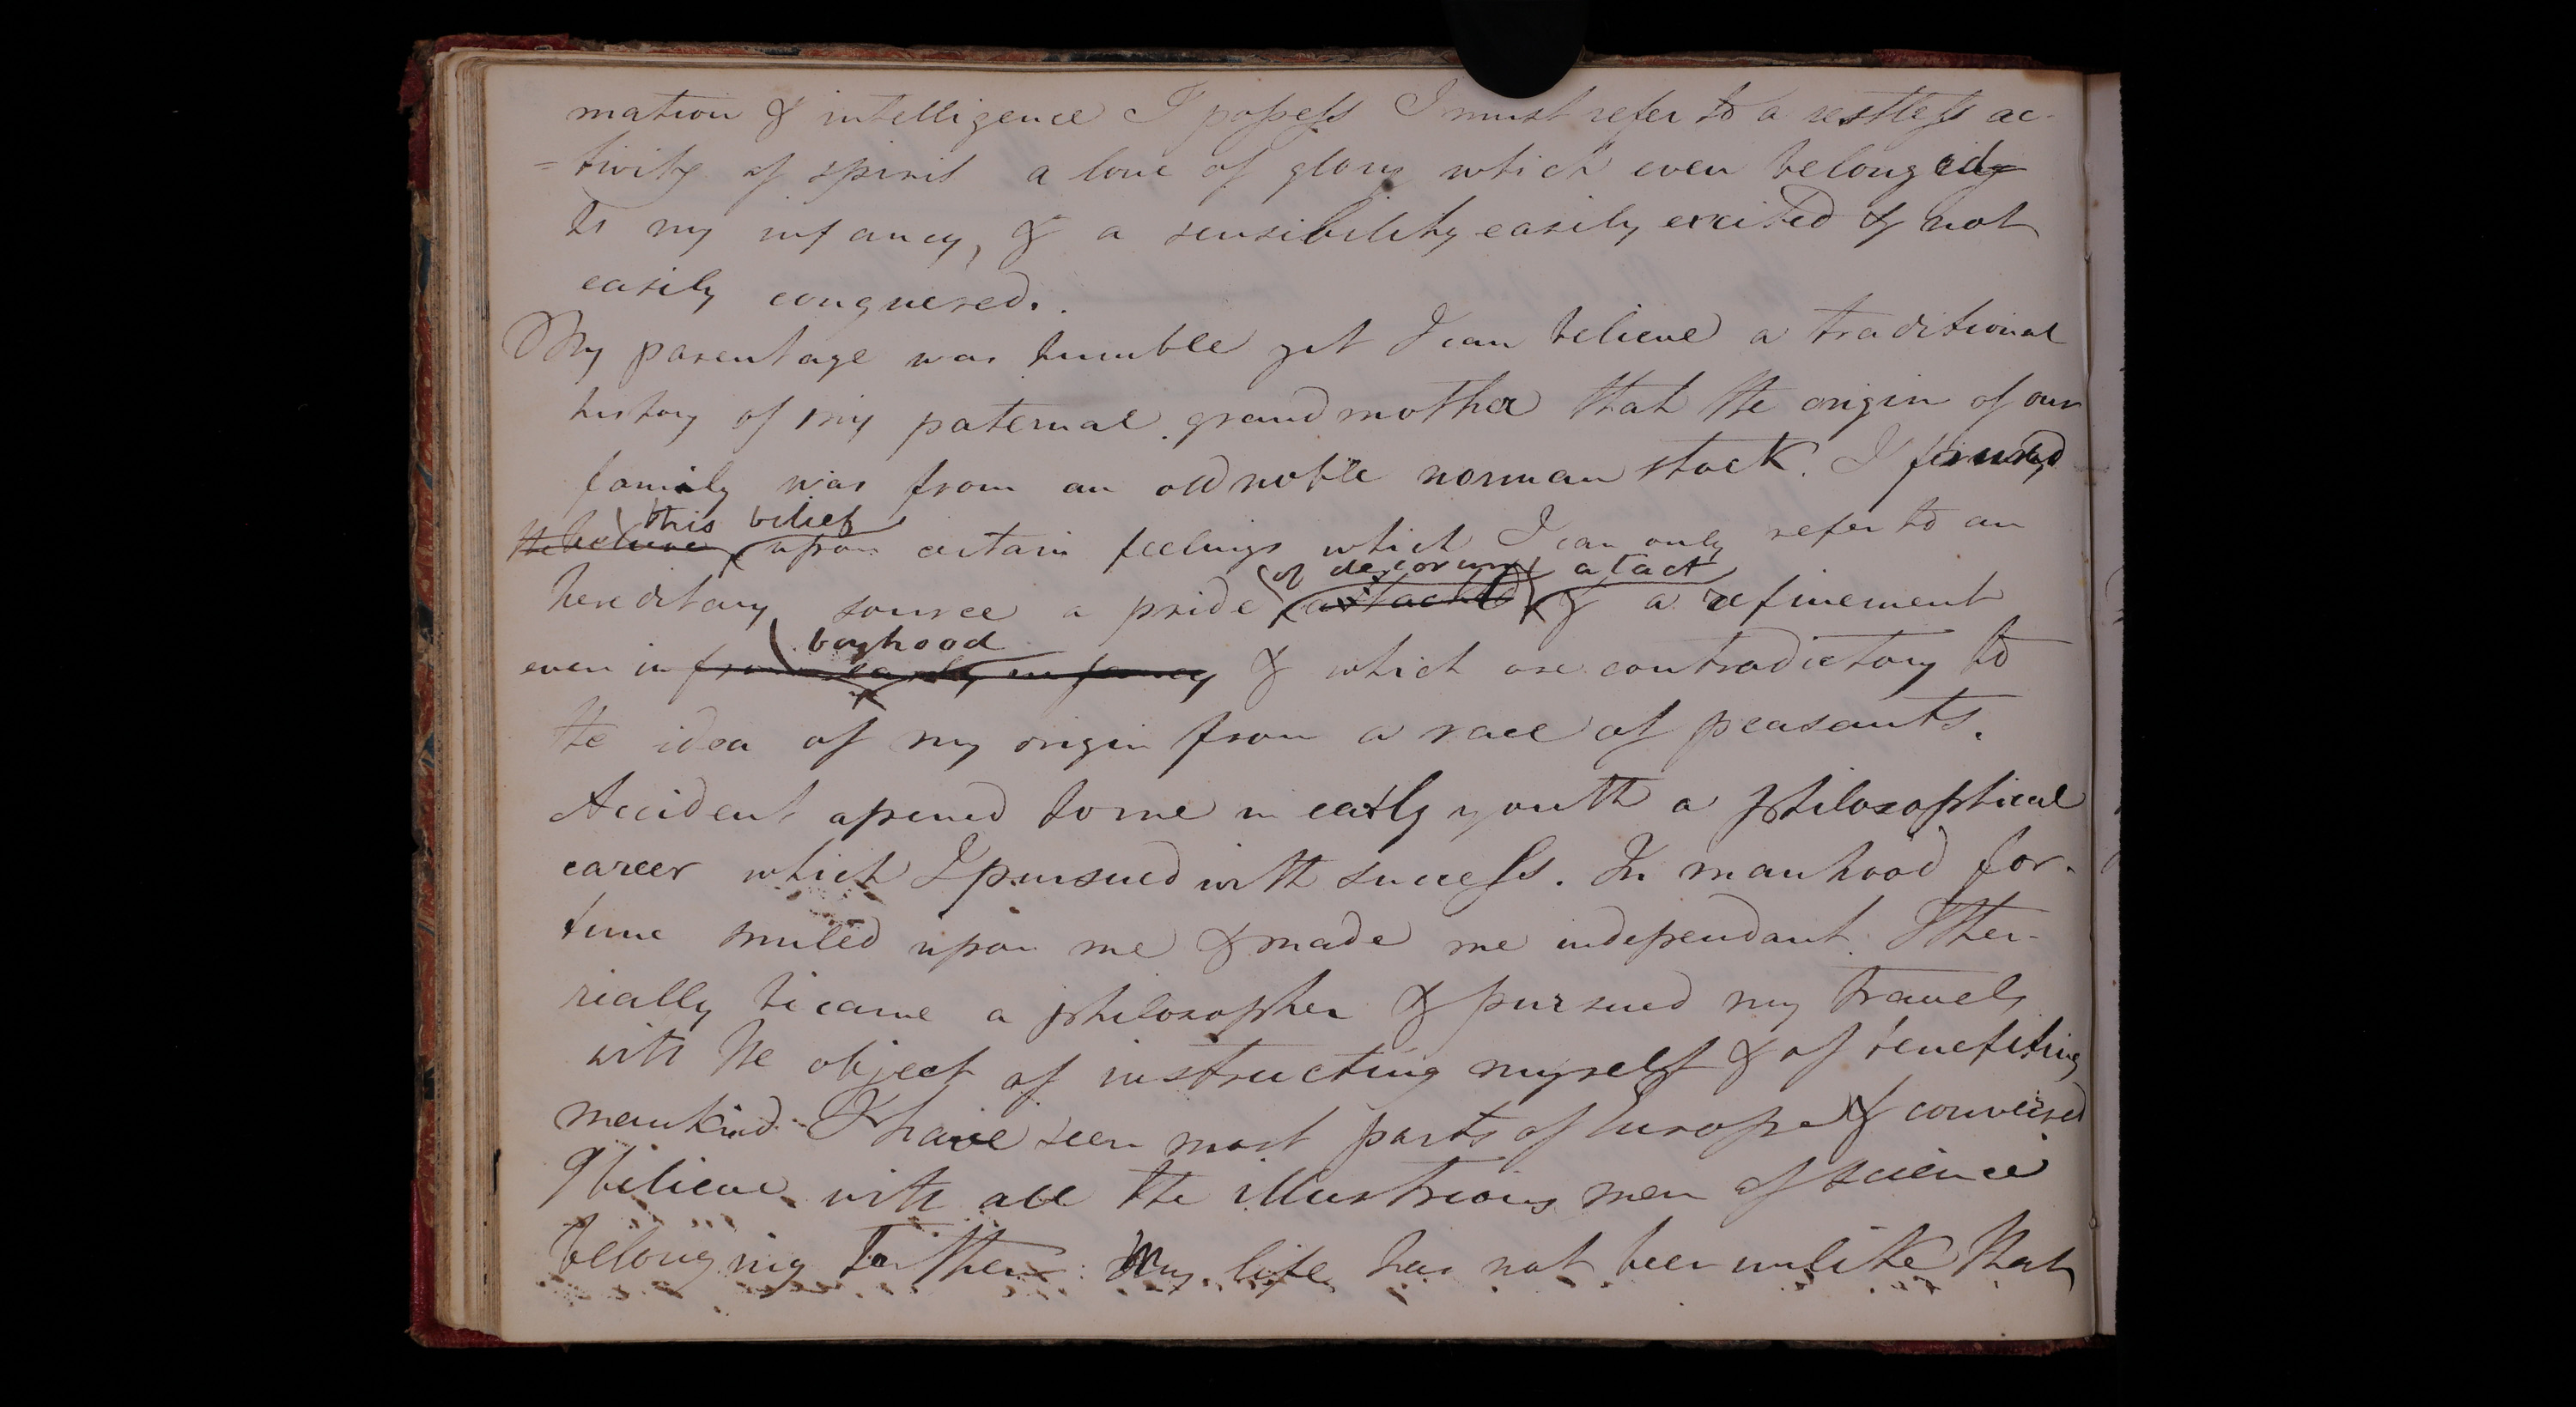 mation & intelligence I possess I must refer to a restless ac-
=tivity of spirit a love of glory which even belonged
to my infancy, & a sensibility easily excited & not
easily conquered.
My parentage was humble yet I can believe a traditional
history of my paternal grandmother that the origin of our
family was from an old noble norman stock. I found
this belief
upon certain feelings which I can only refer to an
of decorum a tact
hereditary source a pride attached & a refinement
boyhood
even in from early infancy & which are contradictory to
the idea of my origin from a race of peasants.
Accident opened to me in early youth a philosophical
career which I pursued with success. In manhood for-
tune smiled upon me & made me independant. I then
really became a philosopher & pursued my travels
with the object of instructing myself & of benefiting
mankind. I have seen most parts of Europe & conversed
I believe with all the illustrious men of science
belonging to them. My life has not been unlike that